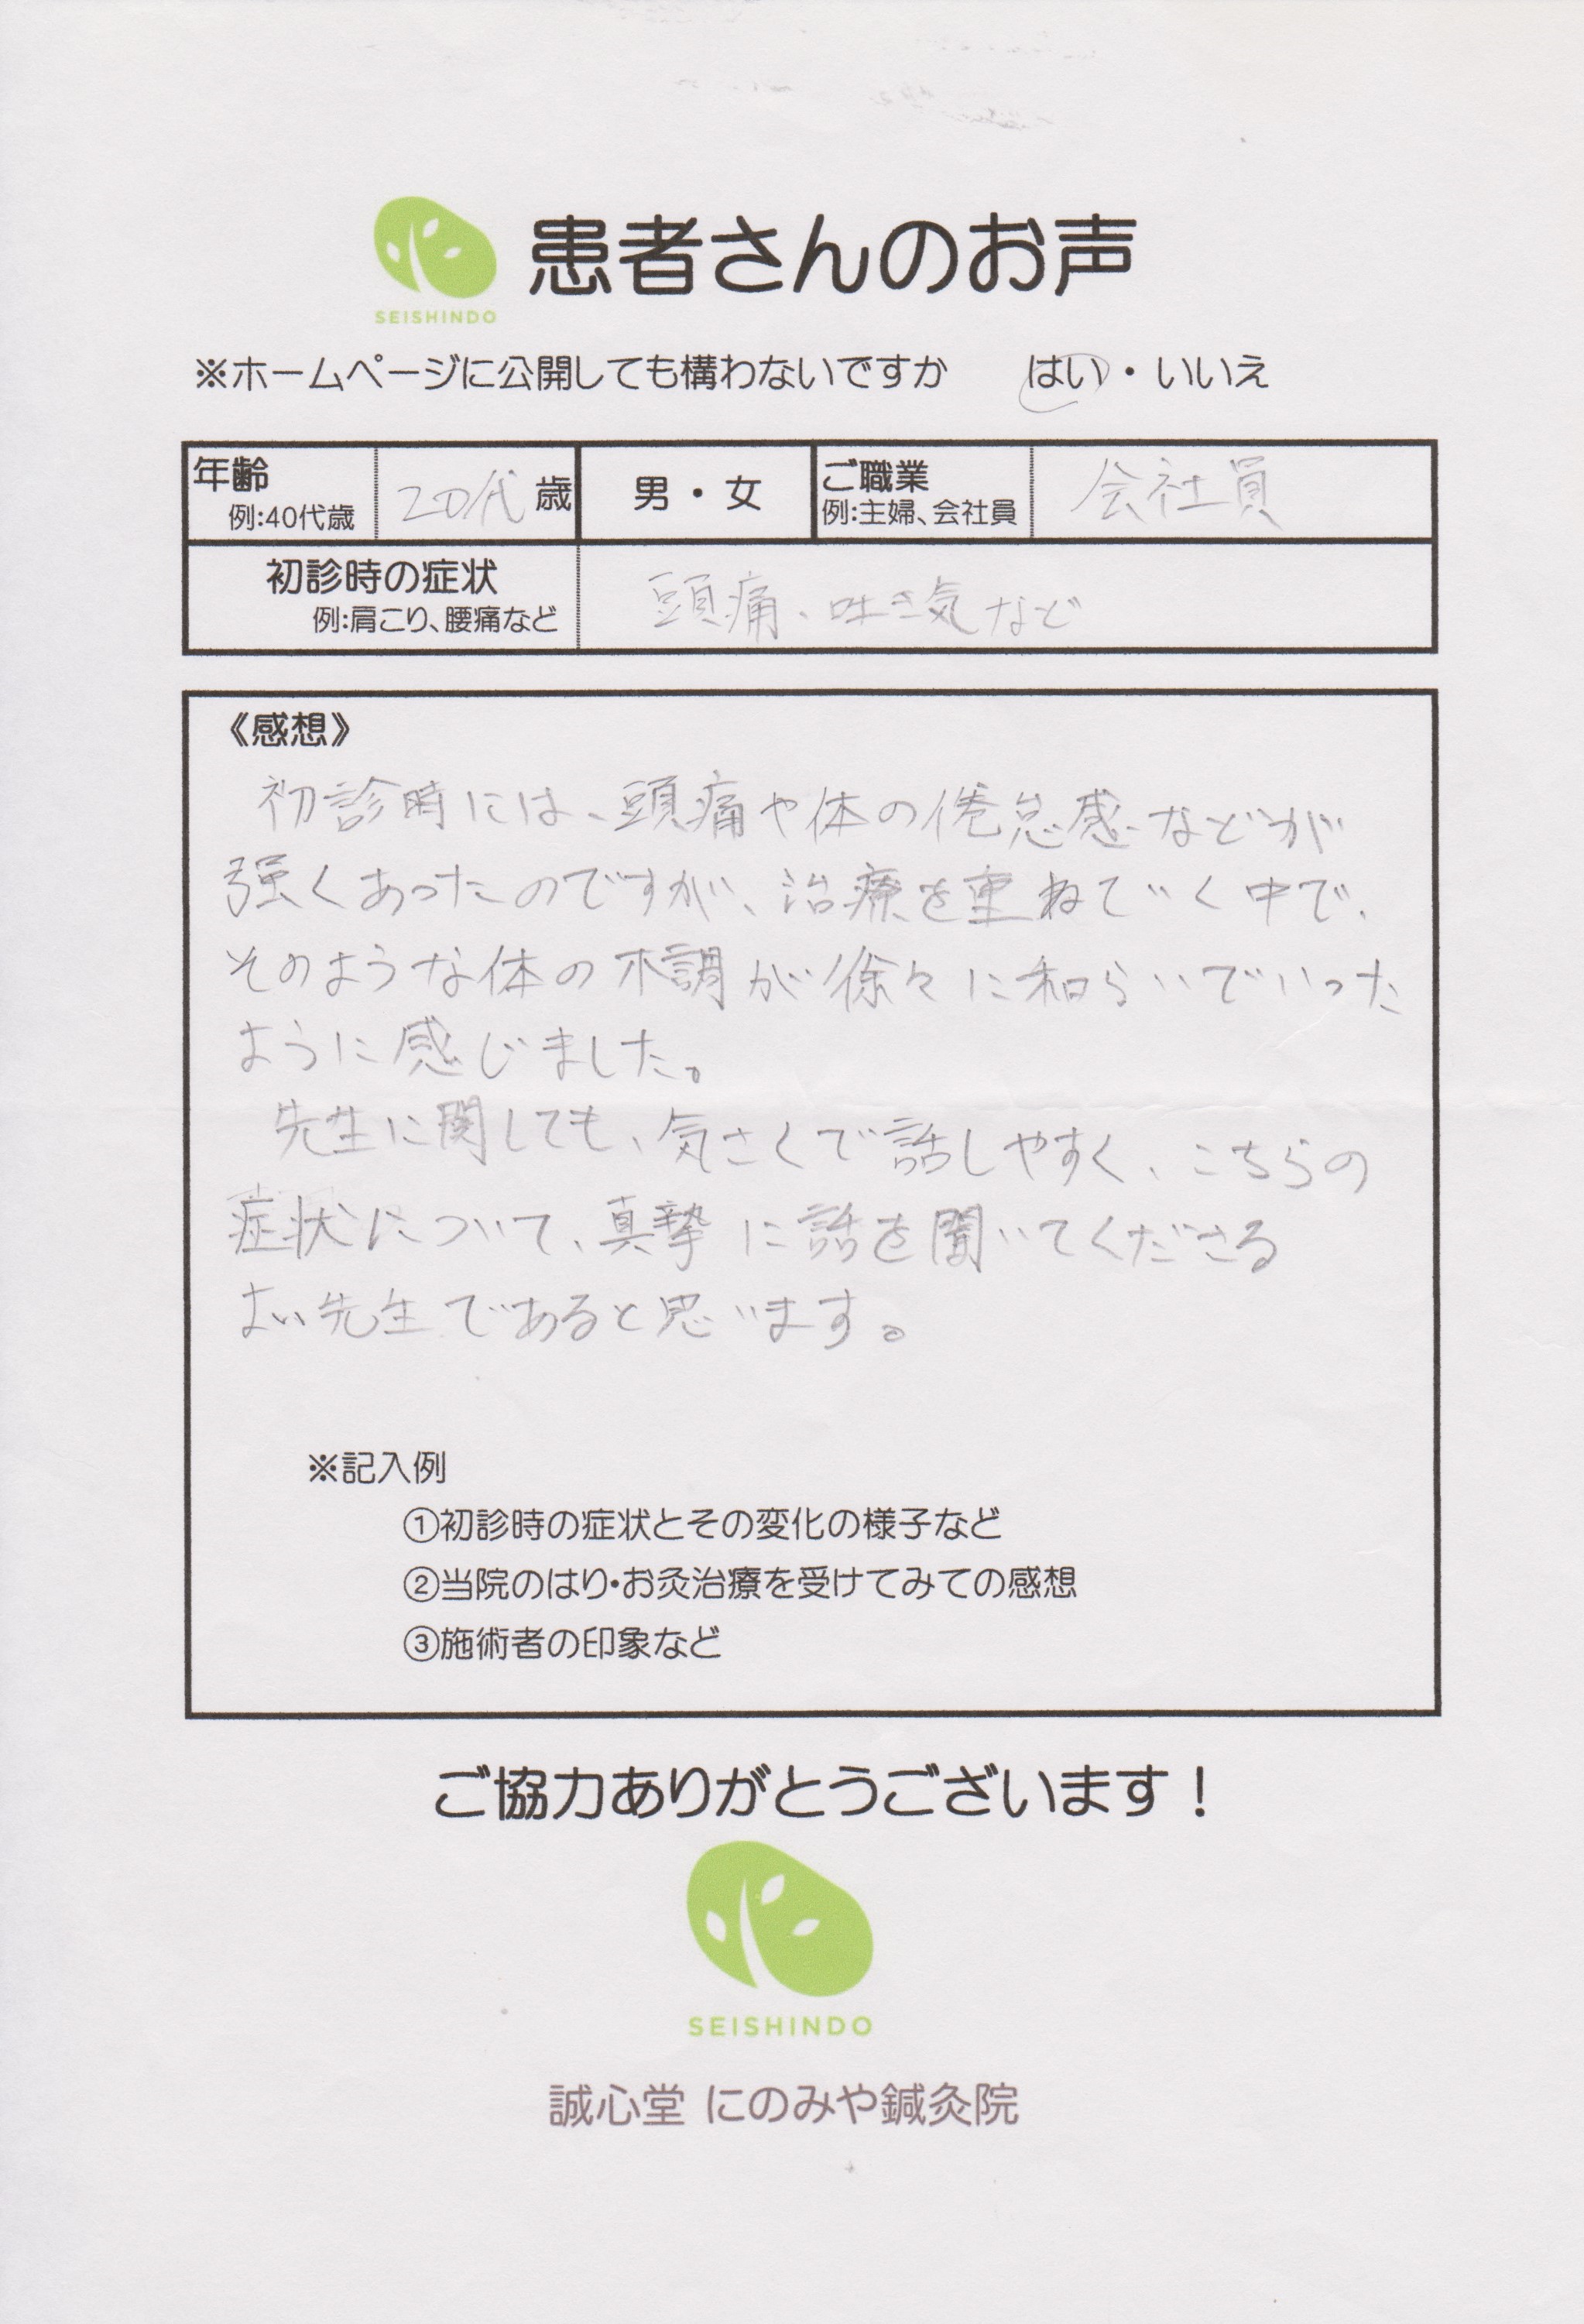 患者さんのお声
SEISHINDO
※ホームページに公開しても構わないですか　はい・いいえ
年齢
例:40代歳
20代歳
男・女
ご職業
例:主婦、会社員
会社員
初診時の症状
例:肩こり、腰痛など
頭痛、吐き気など
《感想》
初診時には、頭痛や体の倦怠感などが
強くあったのですが、治療を重ねていく中で、
そのような体の不調が徐々に和らいでいった
ように感じました。
先生に関しても、気さくで話しやすく、こちらの
症状について、真摯に話を聞いてくださる
よい先生であると思います。
※記入例
①初診時の症状とその変化の様子など
②当院のはり・お灸治療を受けてみての感想
③施術者の印象など
ご協力ありがとうございます！
SEISHINDO
誠心堂 にのみや鍼灸院